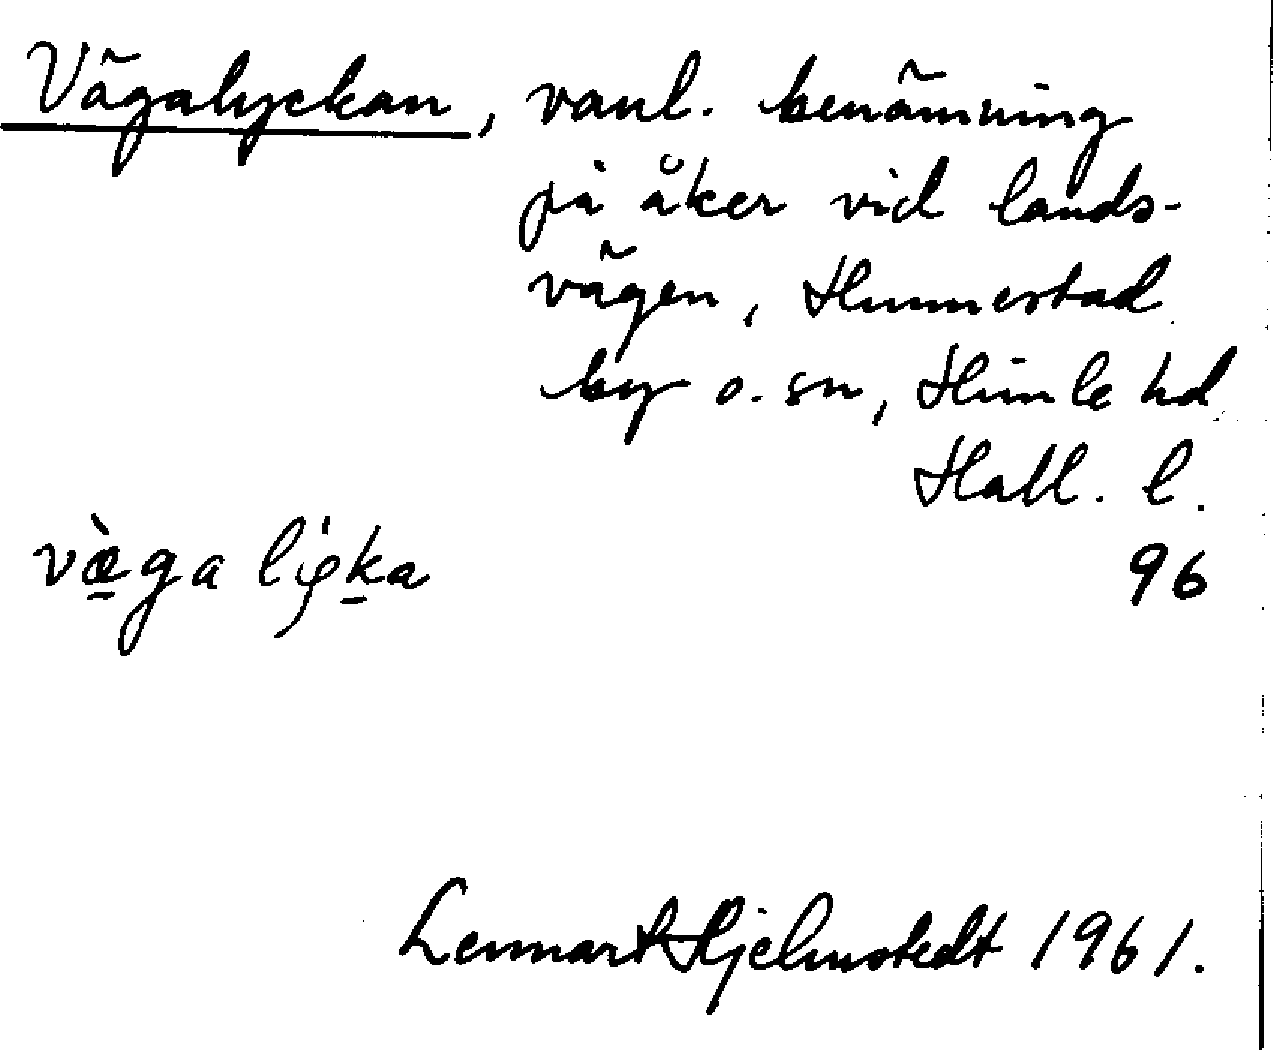 Vägalyckan, vanl. benämning
på åker vid lands-
vägen, Hunnestad
by o. sn, Himle hd
Hall. l.
96
Lennart Hjelmstedt 1961.